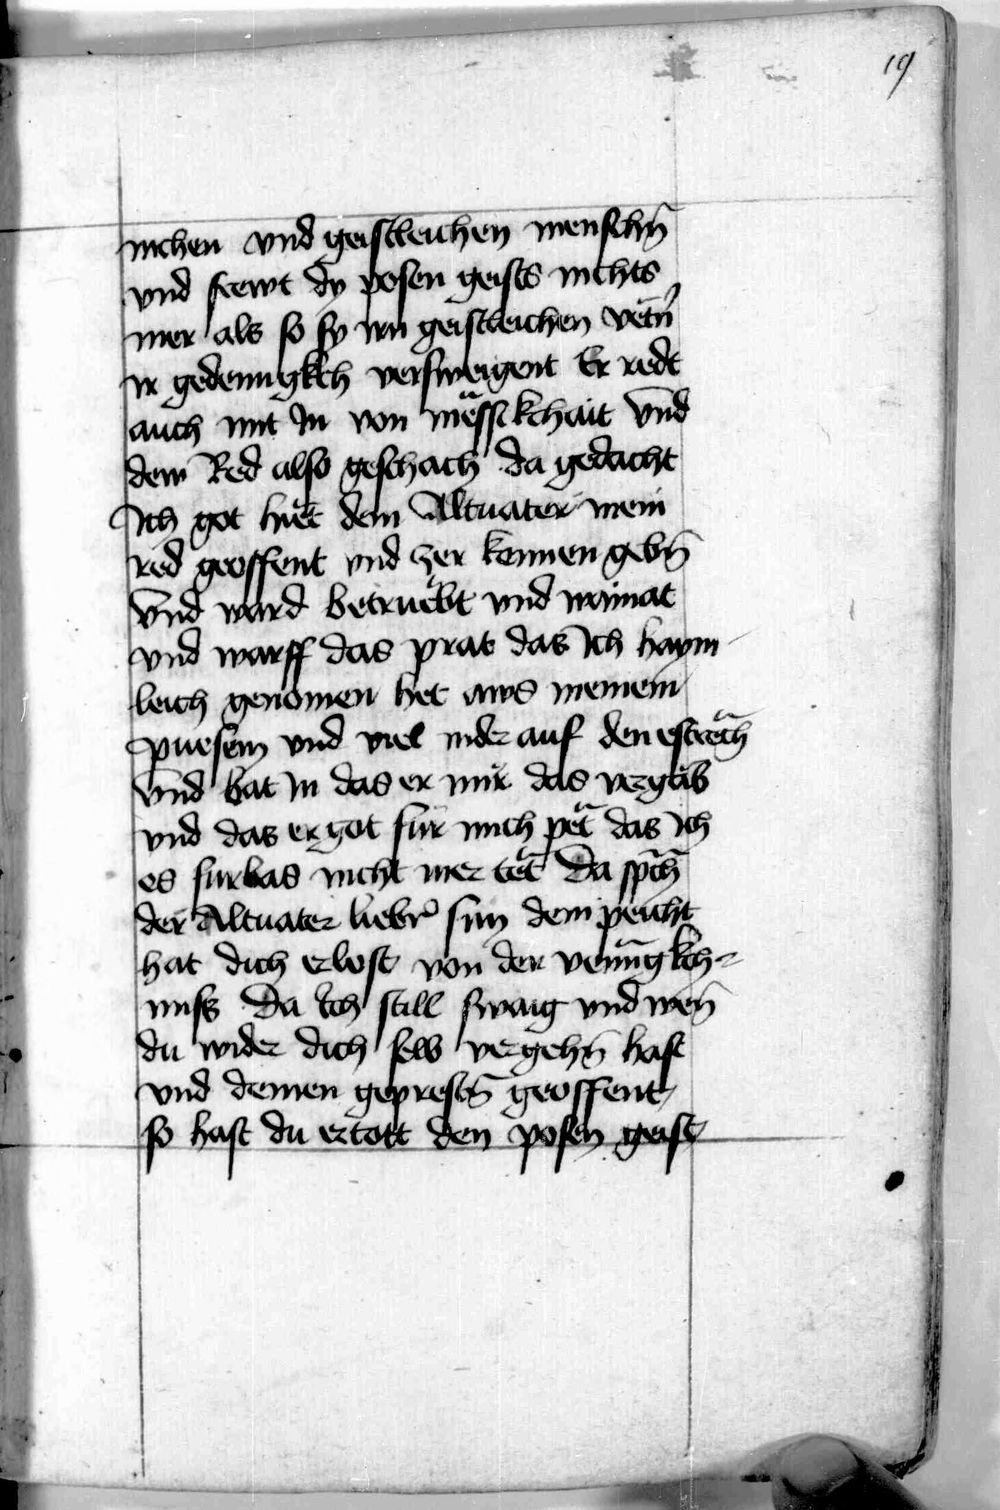 19
nichen vnd geistleichen menschn̄
vnd frewt dy posen geists nichts
mer als so sy irn geistleichen vetn̄
ir gedenngkch versweigent Er redt
auch mit In von mässikchait Vnd
dem Red also geschach da gedacht
Ich got hiet dem Altuater mein
red geoffent vnd zer kennen gebn̄
Vnd ward betruebt vnd wainat
vnd warff das prat das Ich haym
leich genomen het aws meinem
puesem vnd viel nider auf den estrëch
Vnd bat In das er mir das vergäb
vnd das er got fur mich pët das Ich
es furbas nicht mer tët Da sp̄ch
der Altuater liebr̄ sun dem peicht
hat dich erlost von der venn̄gkch-
nuss Da Ich still swaig vnd wen̄
du wider dich selb vergehn̄ hast
vnd deinen geprestn̄ geoffent
so hast du ertött den posen geist